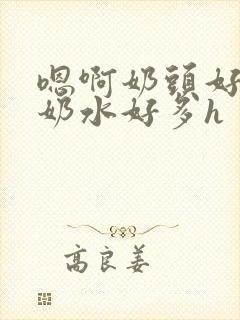 嗯啊奶頭好
奶水好多h
高良姜